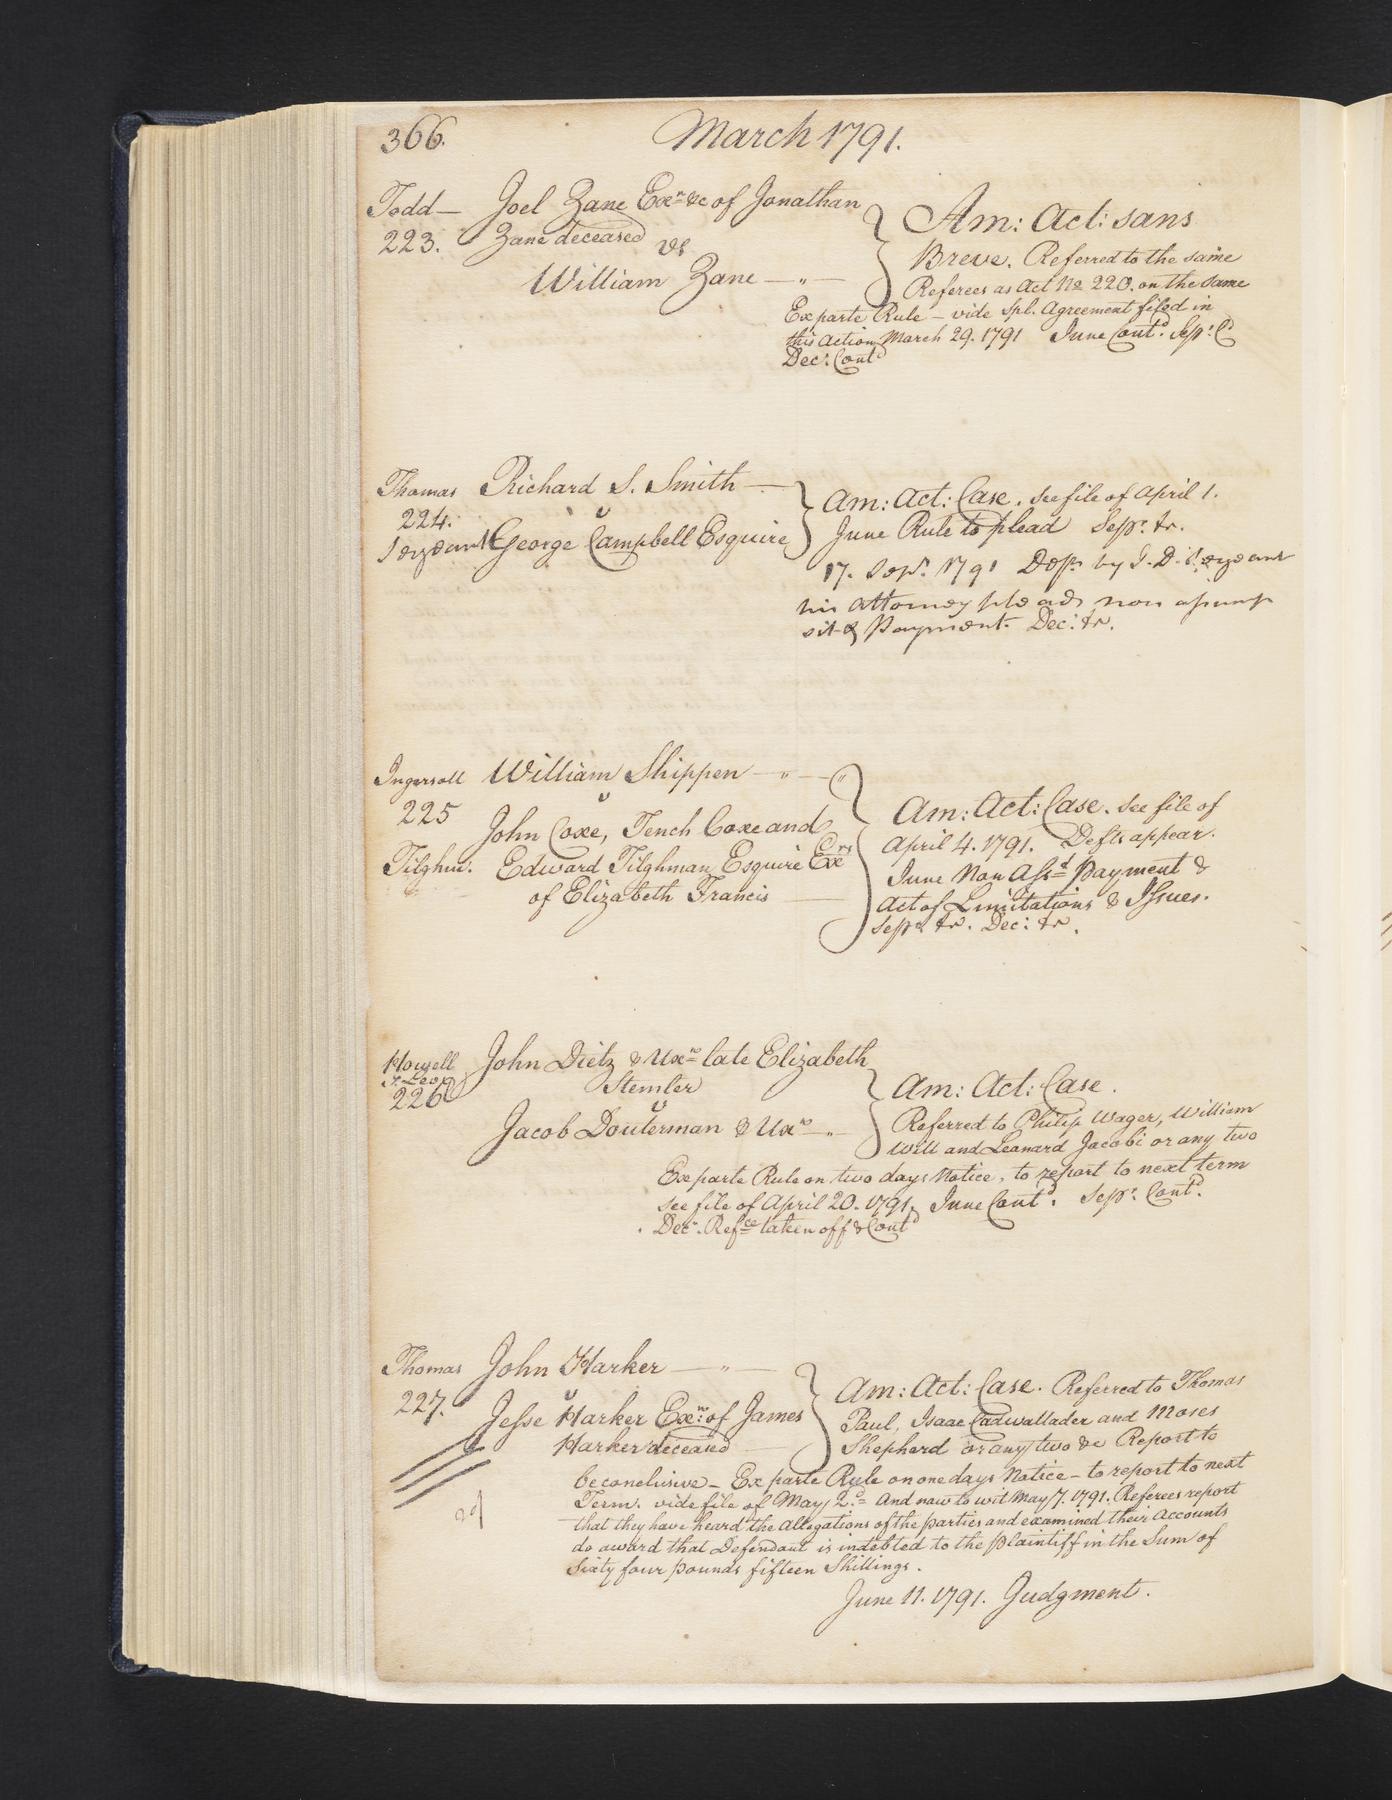 366. March 1791.
Todd— Joel Zane Exr &c of Jonathan
223. Zane deceased
vs
William Zane — " —
Am: Act: sans
Breve. Referred to the same
Referees as Act No 220. on the same
Ex parte Rule — vide Spl. Agreement filed in
this Action March 29. 1791 June Contd. Sepr. C
Decr. Contd
Thomas Richard S. Smith —
224. v
Sergeant George Campbell Esquire
Am: Act: Case. See file of April 1.
June Rule to plead Sepr. tr.
17. Sepr. 1791 Deft. by J. D. Sergeant
his attorney pleads non assump
sit & Payment. Dec: tr.
Ingersoll William Shippen — " — "
225 v
John Coxe, Tench Coxe and
Tilghm. Edward Tilghman Esquire Exrs
of Elizabeth Francis —
Am: Act: Case. See file of
April 4. 1791. Defts appear.
June Non Asst Payment &
Act of Limitations & Issues.
Sepr. tr. Dec: tr.
Howell John Dietz & Uxr late Elizabeth
226 Stemler
v
Jacob Douterman & Uxr — "
Am: Act: Case.
Referred to Philip Wager, William
Will and Leonard Jacobi or any two
Ex parte Rule on two days Notice, to report to next term
see file of April 20. 1791. June Contd. Sepr. Contd.
Decr. Refce taken off & Contd
Thomas John Harker — " —
227. v
Jesse Harker Exr. of James
Harker deceased
Am: Act: Case. Referred to Thomas
Paul, Isaac Cadwallader and Moses
Shepherd or any two &c Report to
be conclusive — Ex parte Rule on one days Notice — to report to next
Term. vide file of May 2d And now to wit May 7. 1791. Referees report
that they have heard the Allegations of the parties and examined their Accounts
do award that Defendant is indebted to the Plaintiff in the Sum of
Sixty four pounds fifteen Shillings.
June 11. 1791. Judgment.